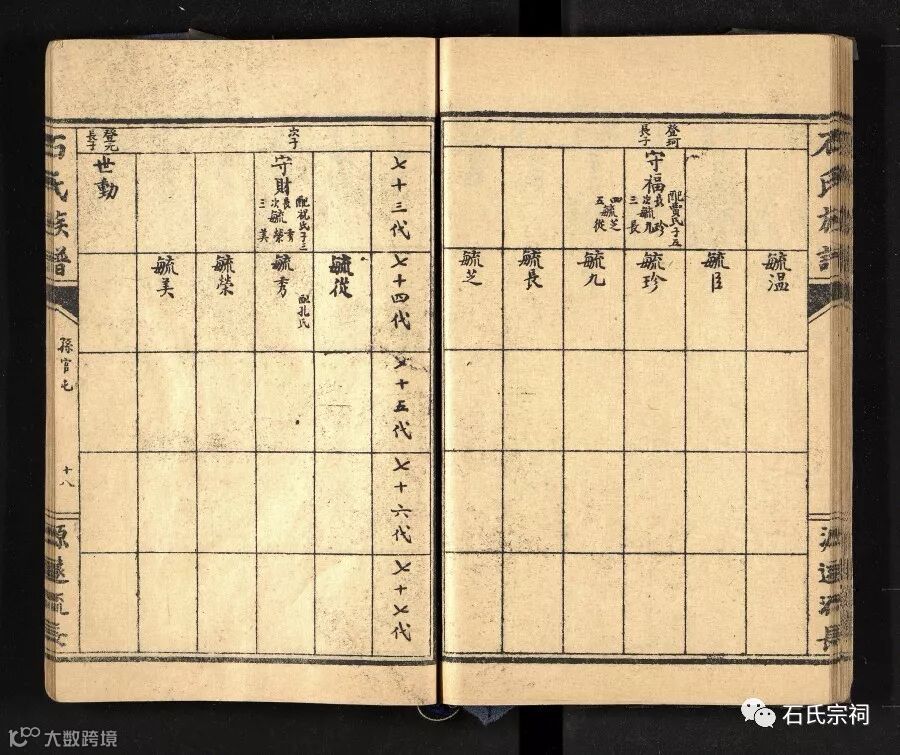 石氏族譜
源遠流長
登珂
長子
守福
配賈氏子五
長 珍
次毓九
三 長
四毓芝
五 從
毓温
毓臣
毓珍
毓九
毓長
毓芝
七十三代
七十四代
七十五代
七十六代
七十七代
次子
守財
配祝氏子三
長 秀
次毓榮
三 美
毓從
毓秀
配孔氏
毓榮
毓美
登元
長子
世勳
石氏族譜
孫官屯
十八
源遠流長
石氏宗祠
大数跨境